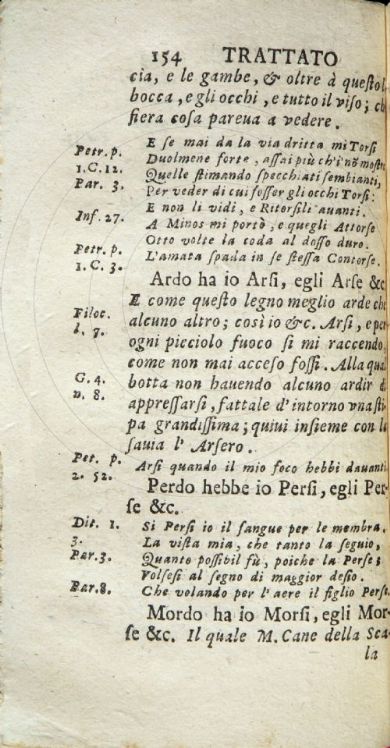 154 TRATTATO
cia, e le gambe, & oltre à questo l
bocca, e gli occhi, e tutto il viso; ch
fiera cosa pareua a vedere.
Petr. p. E se mai da la via dritta mi Torsi
1. C. 12. Duolmene forte, assai più ch'i nõ mostri
Par. 3. Quelle stimando specchiati sembianti,
Per veder di cui fosser gli occhi Torsi:
Inf. 27. E non li vidi, e Ritorsili auanti.
A Minos mi portò, e quegli Attorse
Petr. p. Otto volte la coda al dosso duro.
1. C. 3. L'amata spada in se stessa Contorse.
Ardo ha io Arsi, egli Arse &c.
E come questo legno meglio arde ch
alcuno altro; così io &c. Arsi, e per
Filoc. l. 7. ogni picciolo fuoco si mi raccendo,
come non mai acceso fossi. Alla qual
G. 4. botta non hauendo alcuno ardir d
n. 8. appressarsi, fattale d'intorno vna sti-
pa grandissima; quiui insieme con la
sauia l'Arsero.
Pet. p. 2. 52. Arsi quando il mio foco hebbi dauanti
Perdo hebbe io Persi, egli Per-
se &c.
Dit. 1. 3. Si Persi io il sangue per le membra.
La vista mia, che tanto la seguio,
Par. 3. Quanto possibil fù, poiche la Perse;
Volsesi al segno di maggior desio.
Par. 8. Che volando per l'aere il figlio Perse.
Mordo ha io Morsi, egli Mor-
se &c. Il quale M. Cane della Sca-
la